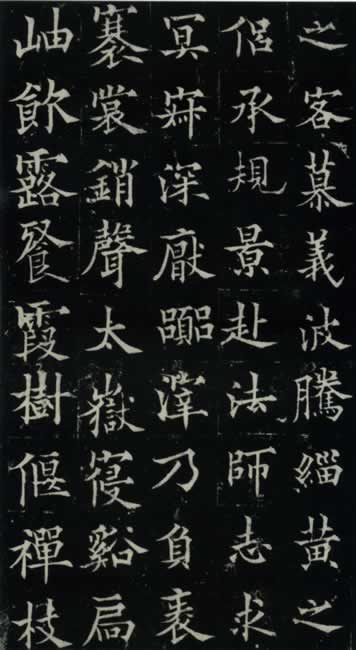 之客慕義波騰緇黄之
侶承規景赴法師志求
冥寂深厭囂滓乃負袠
褰裳銷聲太嶽寑谿扃
岫飲露餐霞樹偃禪枝